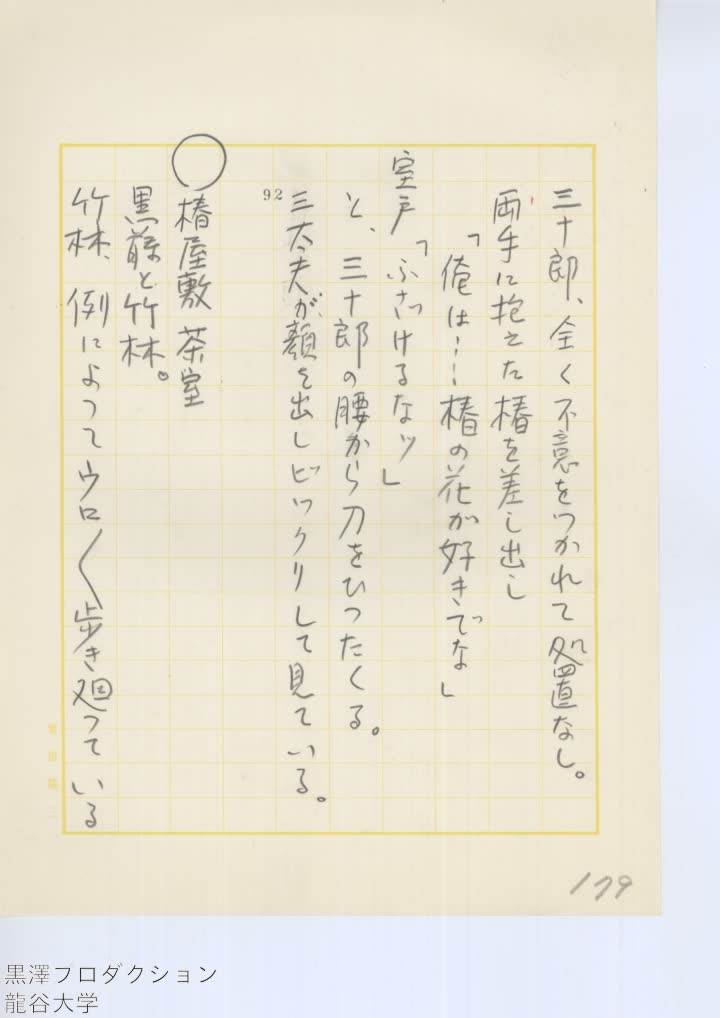 三十郎、全く不意をつかれて処置なし。
両手に抱えた椿を差し出し
「俺は…椿の花が好きでな」
室戸「ふざけるなッ」
と、三十郎の腰から刀をひったくる。
三太夫が顔を出しビックリして見ている。
92
○椿屋敷 茶室
黒藤と竹林。
竹林、例によってウロ〳〵歩き廻っている
179
黒澤プロダクション
龍谷大学